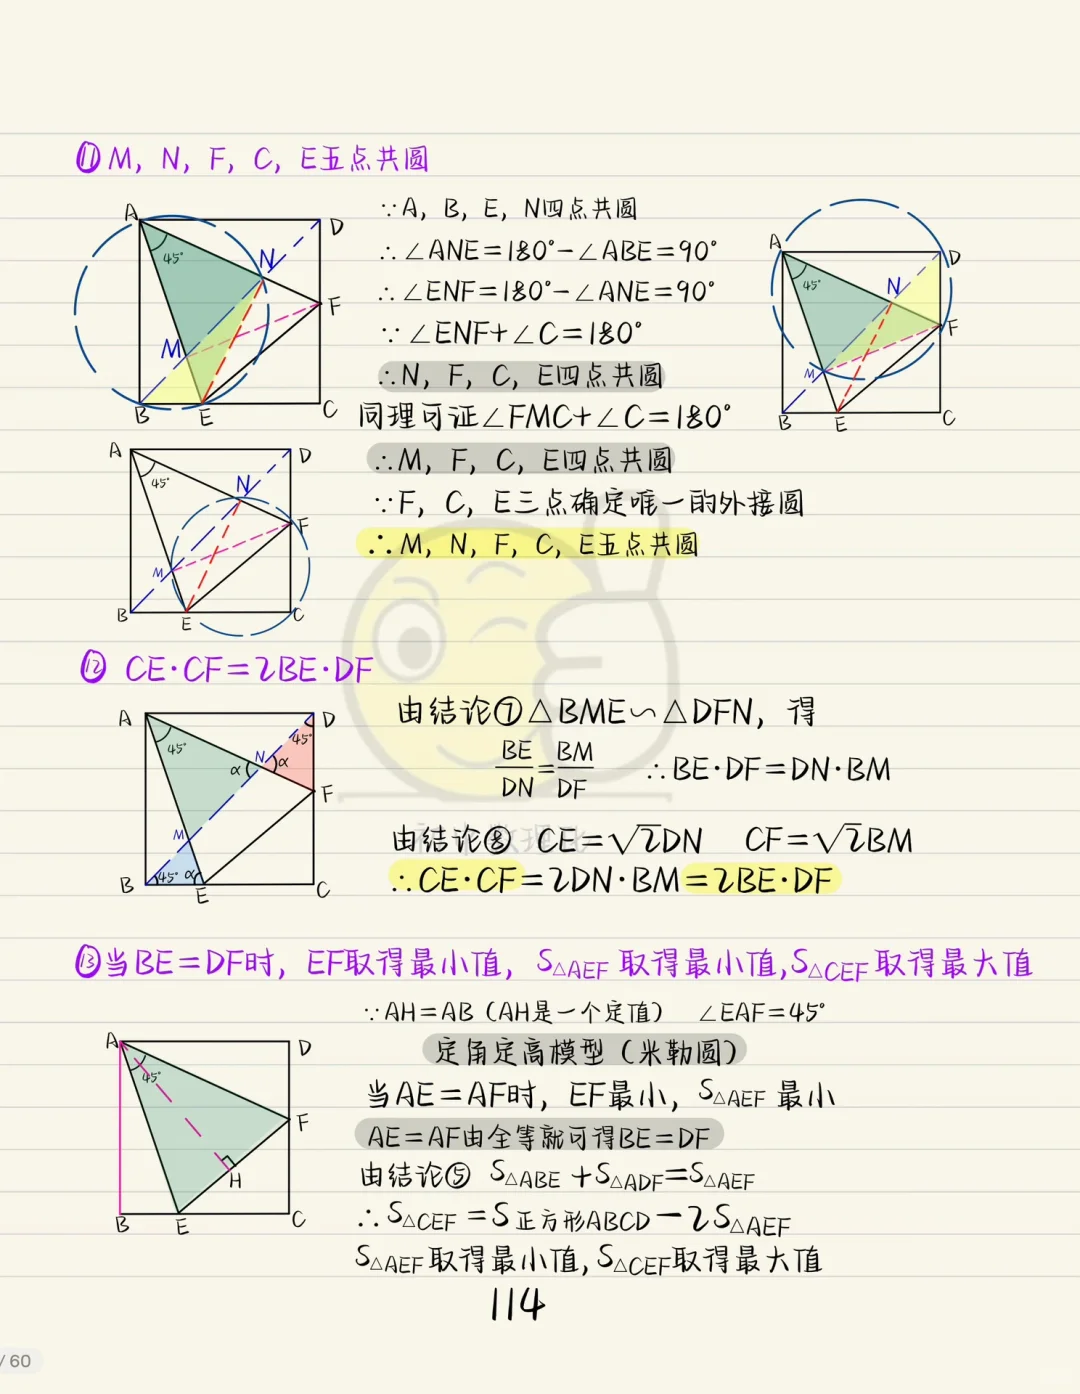 ⑪M, N, F, C, E五点共圆
∵A, B, E, N四点共圆
∴∠ANE=180°-∠ABE=90°
∴∠ENF=180°-∠ANE=90°
∵∠ENF+∠C=180°
∴N, F, C, E四点共圆
同理可证∠FMC+∠C=180°
∴M, F, C, E四点共圆
∵F, C, E三点确定唯一的外接圆
∴M, N, F, C, E五点共圆
A
D
45°
N
F
M
B
E
C
A
D
45°
N
F
M
B
E
C
A
D
45°
N
F
M
B
E
C
⑫ CE·CF=2BE·DF
由结论⑦△BME∽△DFN, 得
BE/DN=BM/DF ∴BE·DF=DN·BM
由结论⑧ CE=√2DN CF=√2BM
∴CE·CF=2DN·BM=2BE·DF
A
D
45°
45°
α
N
α
F
M
B
45°
α
E
C
⑬当BE=DF时, EF取得最小值, S△AEF取得最小值,S△CEF取得最大值
∵AH=AB(AH是一个定值) ∠EAF=45°
定角定高模型(米勒圆)
当AE=AF时, EF最小, S△AEF最小
AE=AF由全等就可得BE=DF
由结论⑤ S△ABE+S△ADF=S△AEF
∴S△CEF=S正方形ABCD-2S△AEF
S△AEF取得最小值,S△CEF取得最大值
A
D
45°
F
H
B
E
C
114
/ 60